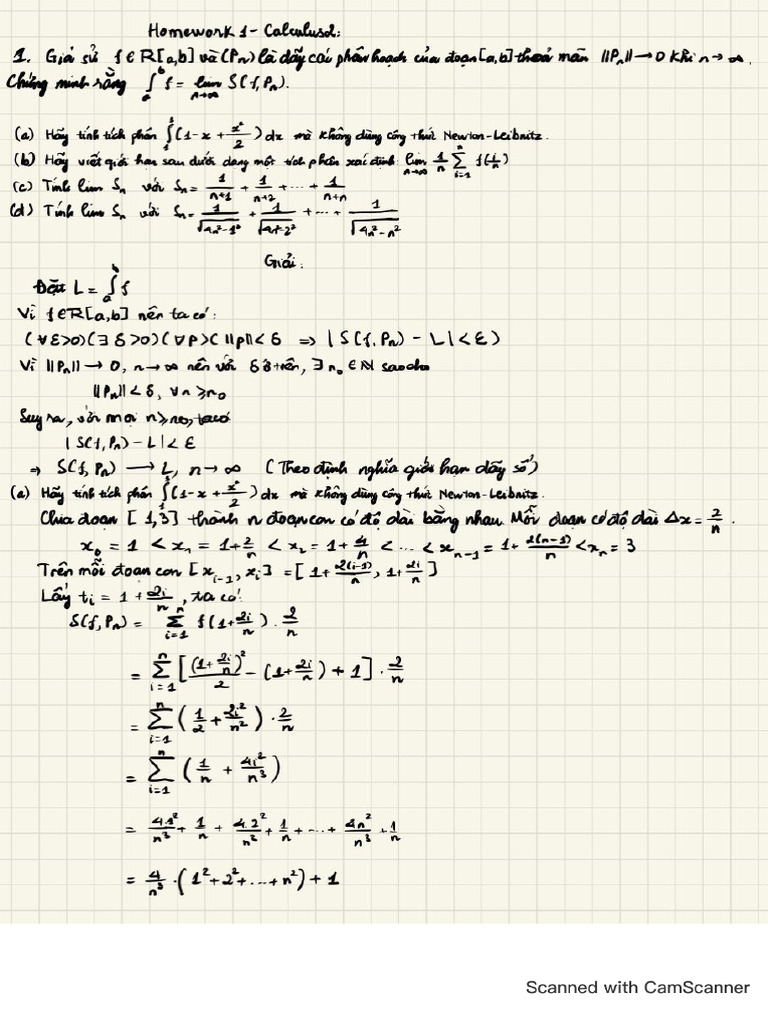 Homework 1 - Calculus2:
1. Giả sử f∈R[a,b] và (Pn) là dãy các phân hoạch của đoạn [a,b] thoả mãn ||Pn|| → 0 khi n → ∞.
Chứng minh rằng ∫_a^b f = lim_{n→∞} S(f,Pn).
(a) Hãy tính tích phân ∫_1^3 (1-x+x²/2)dx mà không dùng công thức Newton-Leibnitz.
(b) Hãy viết giới hạn sau dưới dạng một tích phân xác định: lim_{n→∞} 1/n ∑_{i=1}^n f(i/n)
(c) Tính lim Sn với Sn = 1/(n+1) + 1/(n+2) + ... + 1/(n+n)
(d) Tính lim Sn với Sn = 1/√(4n²-1²) + 1/√(4n²-2²) + ... + 1/√(4n²-n²)
Giải:
Đặt L = ∫_a^b f
Vì f∈R[a,b] nên ta có:
(∀ε>0)(∃δ>0)(∀P)(||P||<δ ⇒ |S(f,Pn) - L|<ε)
Vì ||Pn|| → 0, n → ∞ nên với δ ở trên, ∃n₀ ∈ ℕ sao cho
||Pn|| < δ, ∀n ≥ n₀
Suy ra, với mọi n ≥ n₀, ta có
|S(f,Pn) - L| < ε
⇒ S(f,Pn) → L, n → ∞ (Theo định nghĩa giới hạn dãy số)
(a) Hãy tính tích phân ∫_1^3 (1-x+x²/2)dx mà không dùng công thức Newton-Leibnitz.
Chia đoạn [1,3] thành n đoạn con có độ dài bằng nhau. Mỗi đoạn có độ dài Δx = 2/n.
x₀ = 1 < x₁ = 1+2/n < x₂ = 1+4/n < ... < x_{n-1} = 1+2(n-1)/n < x_n = 3
Trên mỗi đoạn con [x_{i-1}, x_i] = [1+2(i-1)/n, 1+2i/n]
Lấy t_i = 1+2i/n, ta có:
S(f,Pn) = ∑_{i=1}^n f(1+2i/n) · 2/n
= ∑_{i=1}^n [(1+2i/n)²/2 - (1+2i/n) + 1] · 2/n
= ∑_{i=1}^n (1/2 + 2i²/n²) · 2/n
= ∑_{i=1}^n (1/n + 4i²/n³)
= 4.1²/n³ + 1/n + 4.2²/n³ + 1/n + ... + 4n²/n³ + 1/n
= 4/n³ · (1²+2²+...+n²) + 1
Scanned with CamScanner